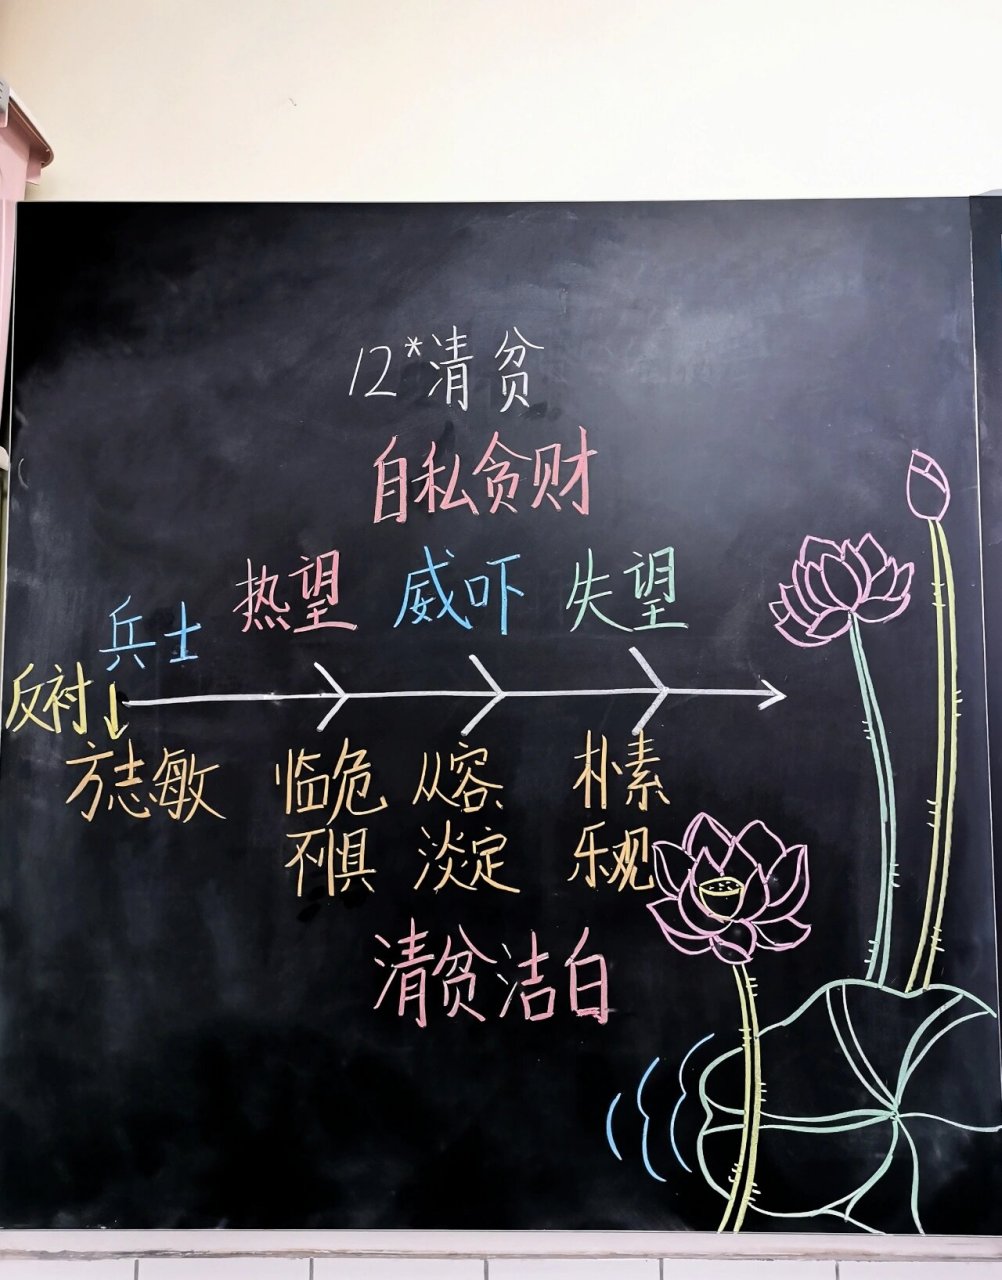 12*清贫
自私贪财
热望 威吓 失望
兵士
反衬
方志敏 临危 从容 朴素
不惧 淡定 乐观
清贫洁白